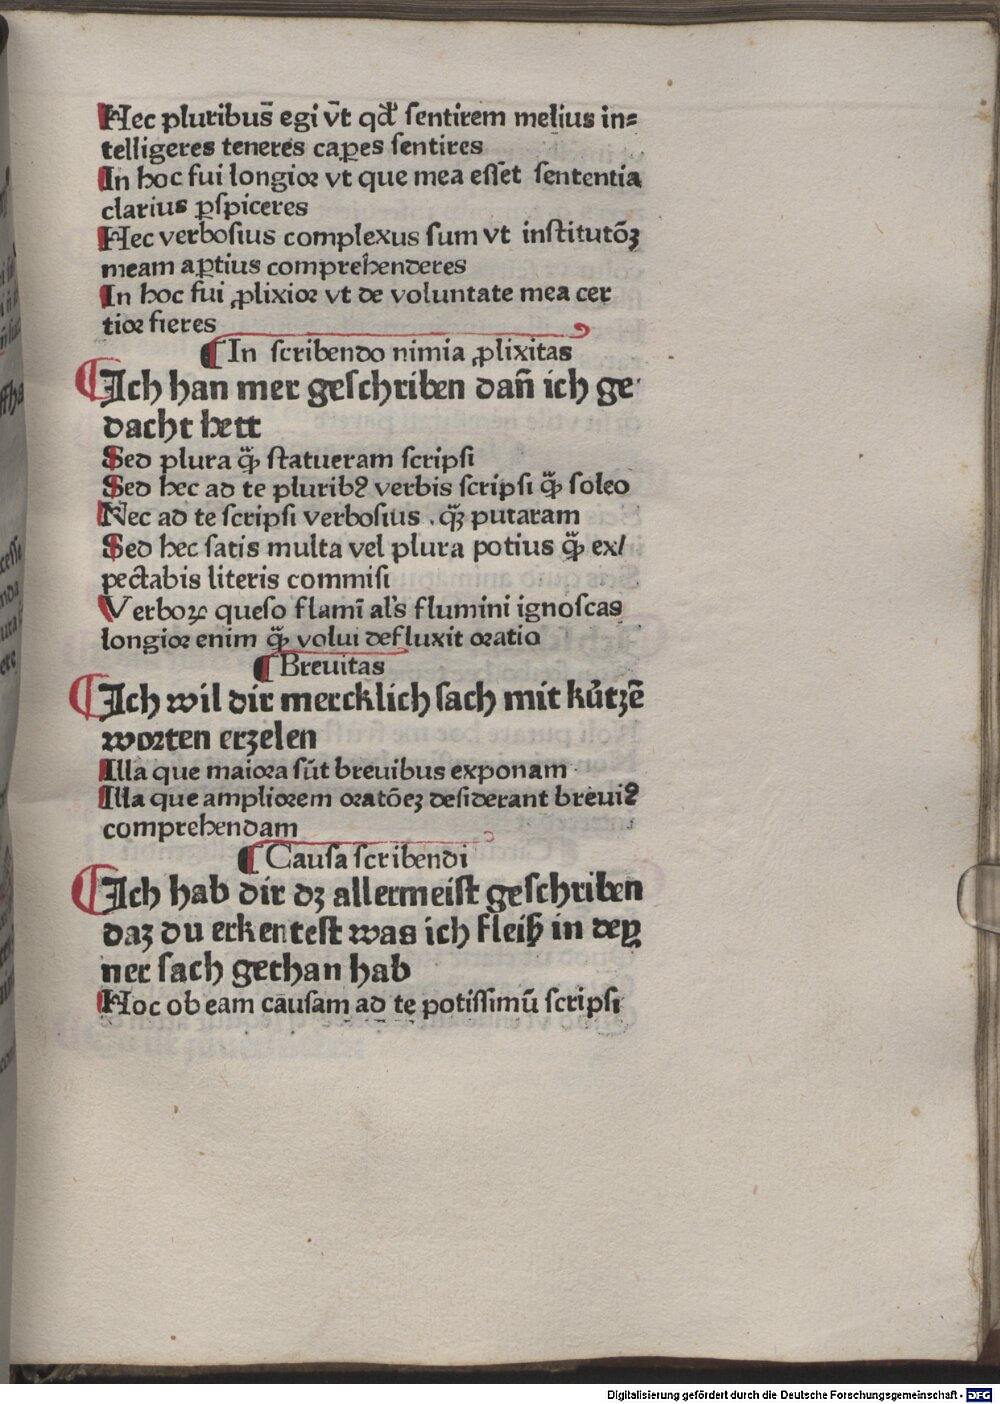 Hec pluribus̄ egi v̄t qđ sentirem melius in⸗
telligeres teneres caꝑes sentires
In hoc fui longioꝛ vt que mea esset sententia
clarius ꝑspiceres
Hec verbosius complexus sum vt institutōꝫ
meam aꝑtius comprehenderes
In hoc fui ꝓlixioꝛ vt de voluntate mea cer
tioꝛ fieres
¶ In scribendo nimia ꝓlixitas
¶ Ich han mer geschriben dan̄ ich ge
dacht hett
Sed plura q̄ꝫ statueram scripsi
Sed hec ad te pluribꝰ verbis scripsi q̄ꝫ soleo
Nec ad te scripsi verbosius . q̄ꝫ putaram
Sed hec satis multa vel plura potius q̄ꝫ ex/
pectabis literis commisi
Verboꝝ queso flamī al's flumini ignoscas
longioꝛ enim q̄ꝫ volui defluxit oꝛatio
¶ Breuitas
¶ Ich wil dir mercklich sach mit kůrtzē
woꝛten erzelen
Illa que maioꝛa sūt breuibus exponam
Illa que amplioꝛem oꝛatōeꝫ desiderant breuiꝰ
comprehendam
¶ Causa scribendi
¶ Ich hab dir dꝫ allermeist geschriben
daz du erkentest was ich fleiß in dey
ner sach gethan hab
Hoc ob eam causam ad te potissimū scripsi
Digitalisierung gefördert durch die Deutsche Forschungsgemeinschaft - DFG